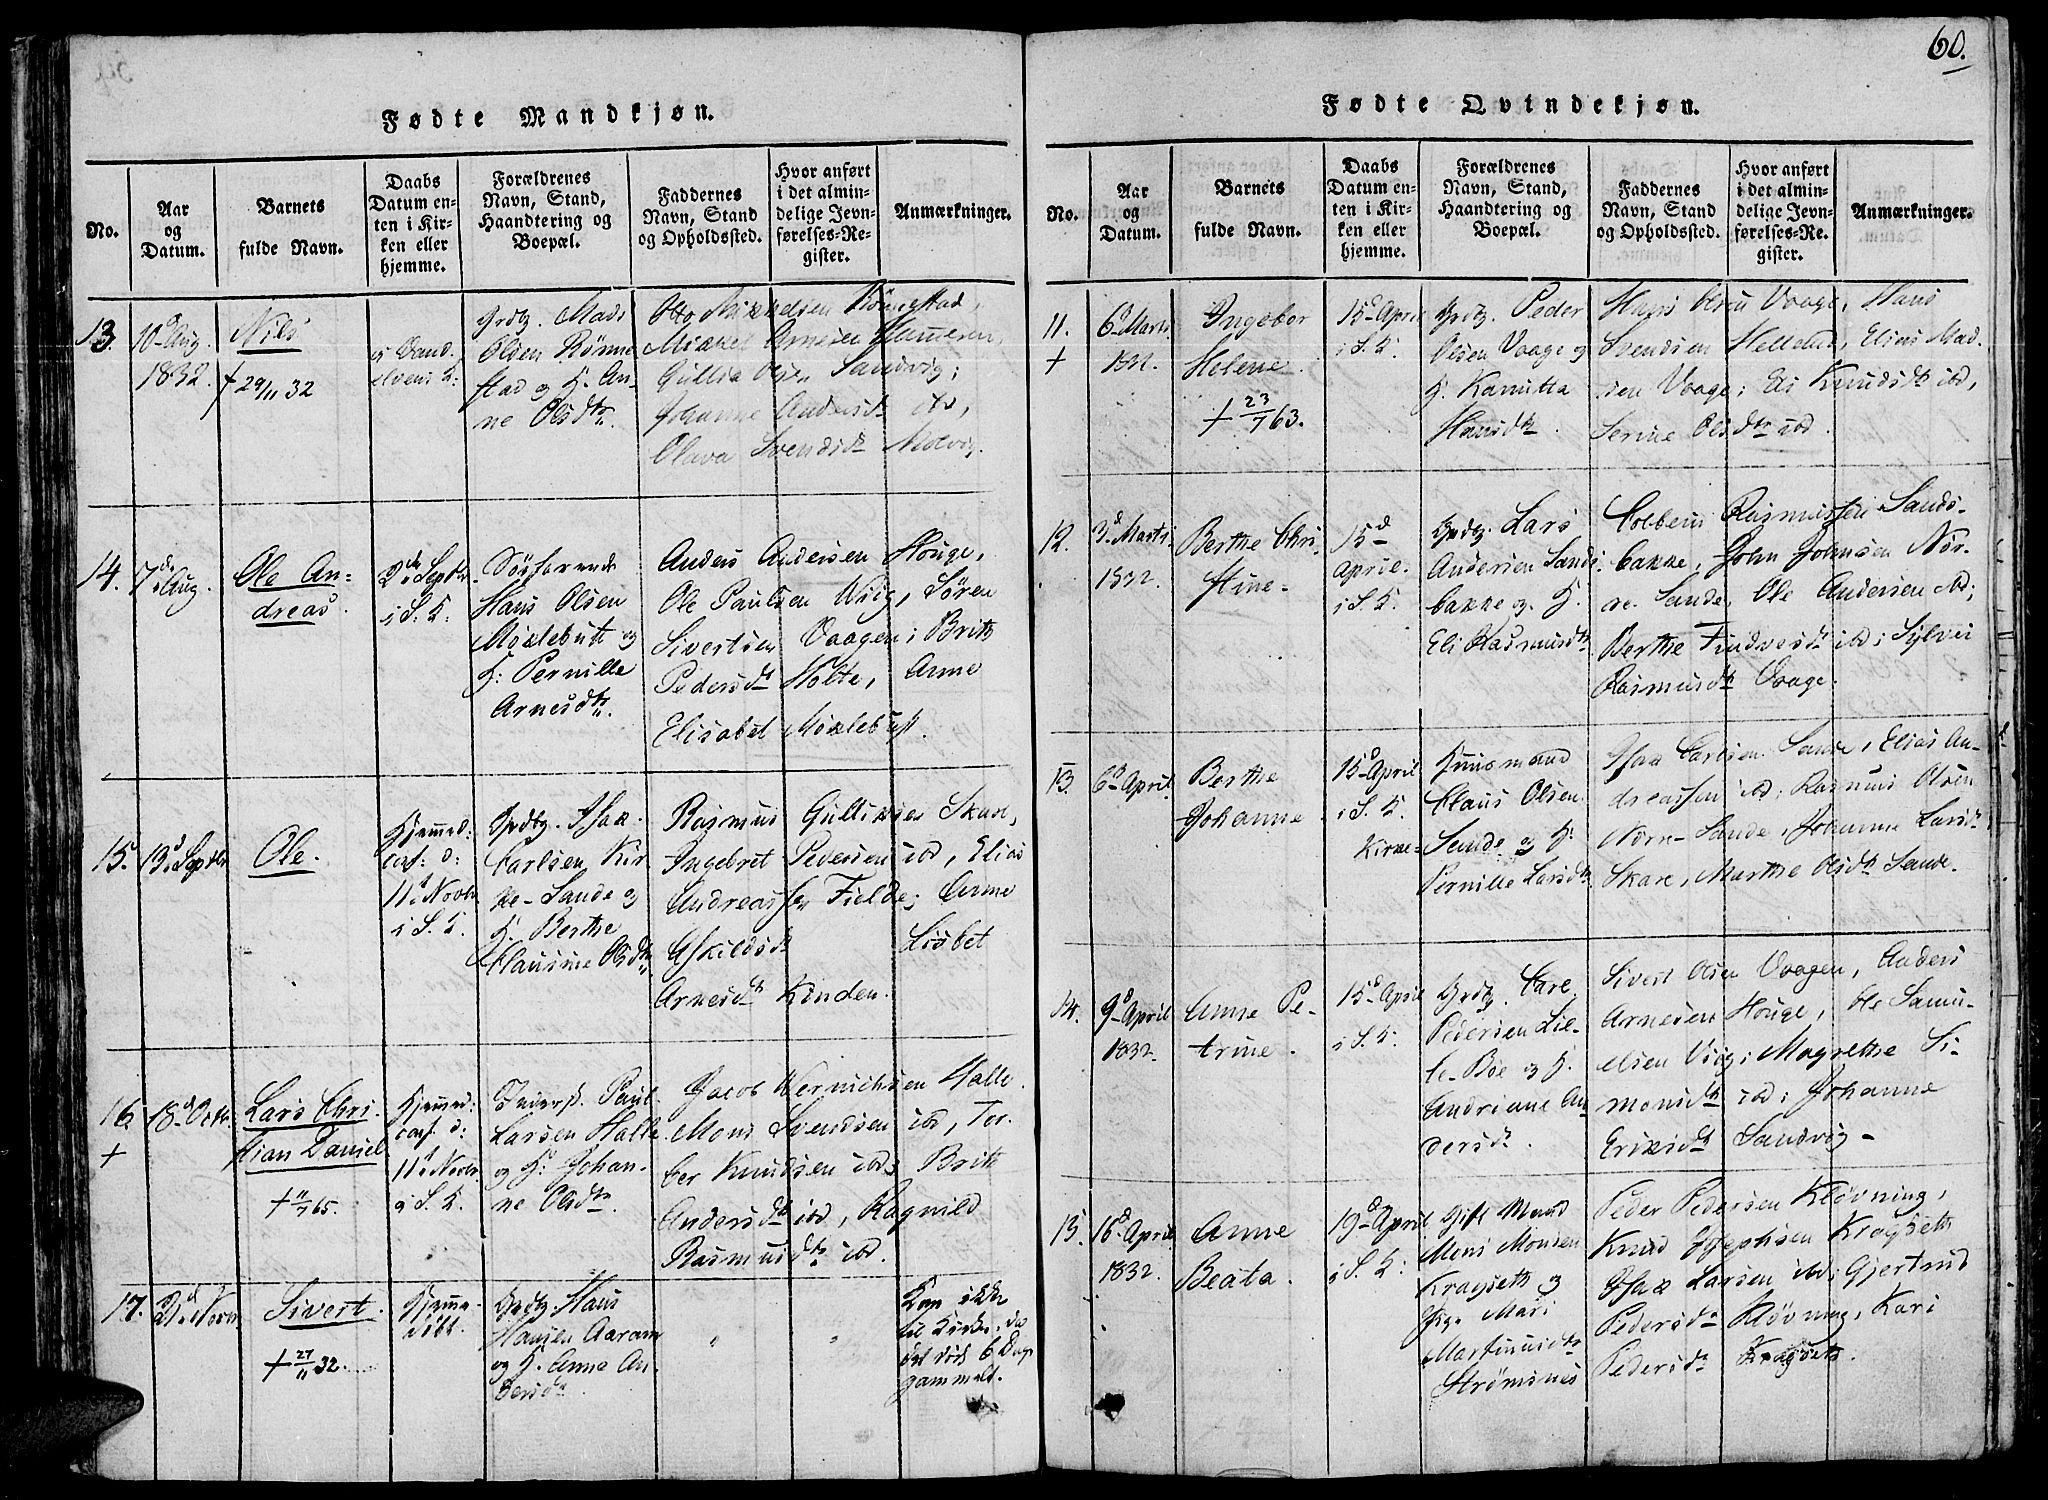 60.
Fødte Mandkjøn.
No.
Aar
og
Datum.
Barnets
fulde Navn.
Daabs
Datum en-
ten i Kir-
ken eller
hjemme.
Forældrenes
Navn, Stand,
Haandtering og
Boepæl.
Faddernes
Navn, Stand
og Opholdssted.
Hvor anført
i det almin-
delige Jevn-
førelses-Re-
gister.
Anmærkninger.
13.
10d Aug.
1832.
Nils
† 29/11 32
i Vand
elvens K:
Grdbr. Mads
Olsen Rönne
stad og K. An-
ne Olsdtr.
Otto Mikkelsen Rönnestad,
Mikkel Arnesen
Sandvig;
Johanne Andersdtr ibd,
Olava Svendsdtr Molvig.
14.
7de Aug.
Ole An-
dreas.
2de Septbr.
i S. K:
Søefarende
Hans Olsen
Møklebust og
K: Pernille
Arnesdtr.
Anders Andersen Houge,
Ole Paulsen Wiig, Søren
Sivertsen Vaagen; Brite
Pedersdtr Holte, Anne
Elisabet Møklebust.
15.
13d Septbr
Ole.
Hjemmed:
conf: d:
11t Novbr
i S. K.
Grdbr. Isak
Carlsen Kir-
ke-Sande og
K. Berthe
Clausine Olsdtr
Rasmus Gulliksen Skare,
Ingebret Pedersen ibd, Elias
Andreassen Fielde; Anne
Askildsdtr Lisbet
Arnesdtr Kinden.
16.
†
18d Octbr.
Lars Chri-
stian Daniel
† 11/7 65.
Hjemmed:
conf. d:
11t Novbr.
i S. K.
Inderst. Paul
Larsen Halle
og K: Johan-
ne Olsdtr.
Jacob Wernichsen Halle.
Mons Svendsen ibd, Tor-
ber Knudsen ibd; Brite
Andersdtr ibd, Ragnild
Rasmusdtr ibd.
17.
21d Novbr
Sivert.
† 27/11 32.
Hjemme-
döbt.
Grdbr. Hans
Hansen Aaram
og K. Anna An-
dersdtr.
"
"
Kom ikke
til Kirke, da
det döde 6 Dage
gammelt.
Fødte Qvindekjøn.
No.
Aar
og
Datum.
Barnets
fulde Navn.
Daabs
Datum en-
ten i Kir-
ken eller
hjemme.
Forældrenes
Navn, Stand,
Haandtering og
Boepæl.
Faddernes
Navn, Stand
og Opholdssted.
Hvor anført
i det almin-
delige Jevn-
førelses-Re-
gister.
Anmærkninger.
11.
†
6d Marti
1832.
Ingebor
Helene.
† 23/7 63.
15d April
i S. K.
Grdbr. Peder
Olsen Vaage og
K. Kanutta
Hansdtr.
Hans Olsen Vaage, Hans
Svendsen Hellelid, Elias Mad-
sen Vaage; Eli Knudsdtr ibd,
Serine Olsdtr ibd.
12.
3d Marti
1832.
Berthe Chri-
stine-
15d
April.
i S. K:
Grdbr. Lars
Andersen Sands-
bakke og K.
Eli Rasmusdtr
Colbenn Rasmussen Sands-
bakke, John Johnsen Nör-
re-Sande, Ole Andersen ibd;
Berthe Findvesdtr ibd; Sylvei
Rasmusdtr Vaage.
13.
6d April
Berthe
Johanne
15d April
i S. K.
Huusmand
Claus Olsen
Kirke-Sande og K:
Pernille Larsdtr
Isaa Carlsen Sande, Elias An-
dreassen ibd; Rasmus Olsen
Nörre-Sande, Johanne Larsdtr
Skare, Marthe Olsdtr Sande.
14.
9d April
1832.
Anne Pe-
trine.
15d April
i S. K:
Grdbr. Carl
Pedersen Lil-
le-Böe og K.
Andriane An-
dersdtr.
Sivert Olsen Vaagen, Anders
Arnesen Houge, Ole Samu-
elsen Viig; Magrethe Si-
monsdtr ibd; Johanne
Eriksdtr Sandvig-
15.
16d April
1832.
Anne
Beata.
19d April
i S. K:
Gift Mand
Mons Monsen
Kragseth og
Pige Mari
Martinusdtr
Strømsnes
Peder Pedersen Kløvning,
Knud Josephsen Kragseth
Isak Larsen ibd; Gjertrud
Pedersdtr Kløvning, Kari
Pedersdtr Kragseth.